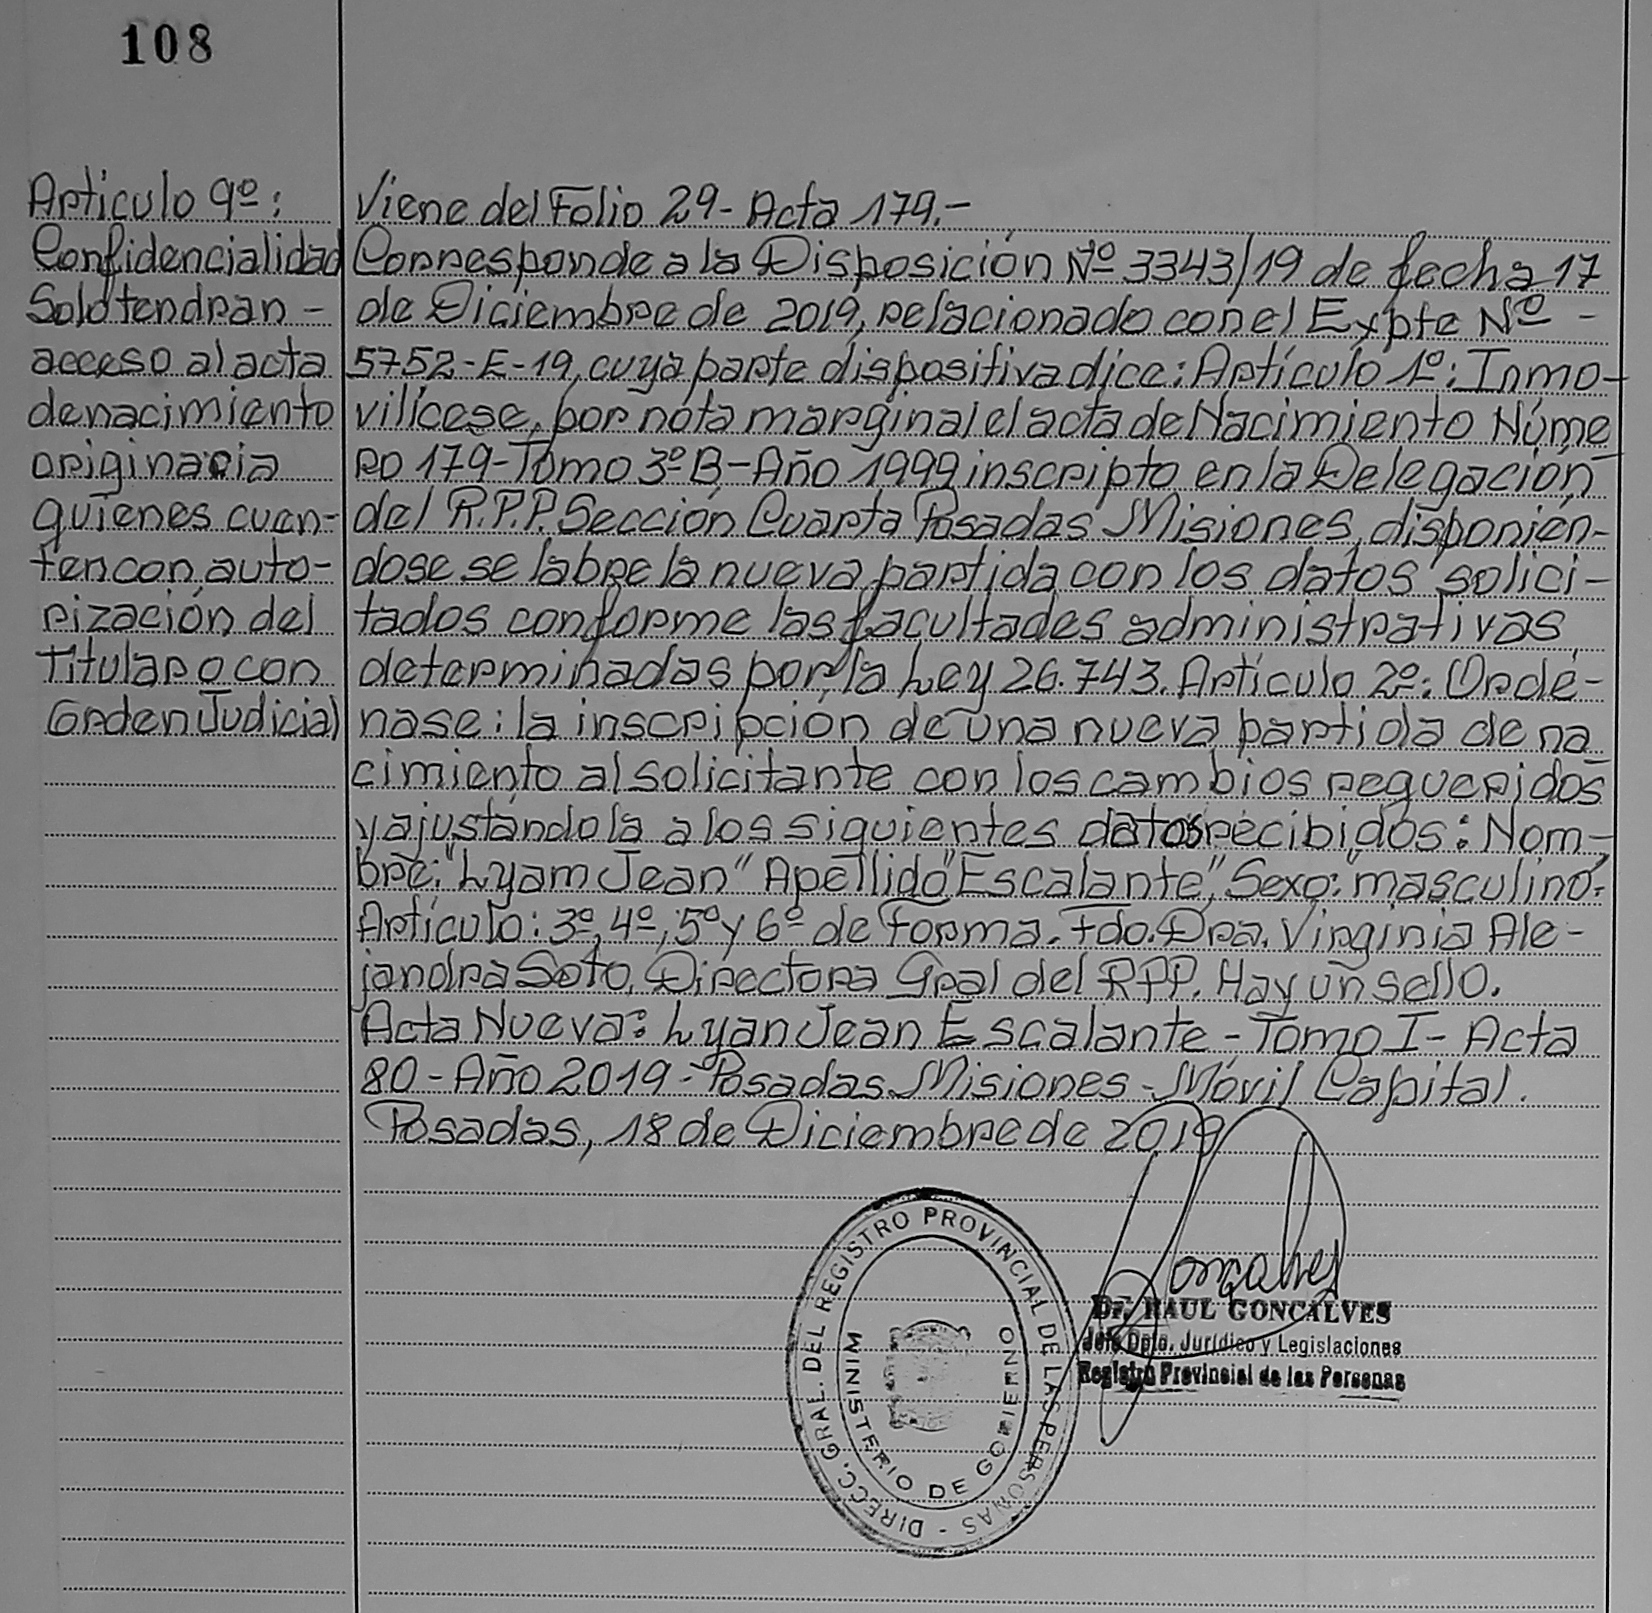 108
Articulo 9º:
Confidencialidad
Solo tendran -
acceso al acta
de nacimiento
originaria
quienes cuen-
ten con auto-
rización del
Titular o con
Orden Judicial
Viene del Folio 29 - Acta 179.-
Corresponde a la Disposición Nº 3343/19 de fecha 17
de Diciembre de 2019, relacionado con el Expte Nº -
5752-E-19, cuya parte dispositiva dice: Artículo 1º: Inmo-
vilícese, por nota marginal el acta de Nacimiento Núme
ro 179 - Tomo 3º B - Año 1999 inscripto en la Delegación
del R.P.P. Sección Cuarta Posadas Misiones, disponién-
dose se labre la nueva partida con los datos solici-
tados conforme las facultades administrativas
determinadas por la Ley 26.743. Artículo 2º: Ordé-
nase: la inscripción de una nueva partida de na
cimiento al solicitante con los cambios requeridos
y ajustándola a los siguientes datos recibidos: Nom-
bre: "Lyam Jean" Apellido "Escalante", Sexo: masculino.
Artículo: 3º, 4º, 5º y 6º de Forma. Fdo. Dra. Virginia Ale-
jandra Soto. Directora Gral del RPP. Hay un sello.
Acta Nueva: Lyan Jean Escalante - Tomo I - Acta
80 - Año 2019 - Posadas Misiones - Móvil Capital.
Posadas, 18 de Diciembre de 2019
DIRECC. GRAL. DEL REGISTRO PROVINCIAL DE LAS PERSONAS -
MINISTERIO DE GOBIERNO
Goncalves
Dr. RAUL GONCALVES
Jefe Dpto. Jurídico y Legislaciones
Registro Provincial de las Personas